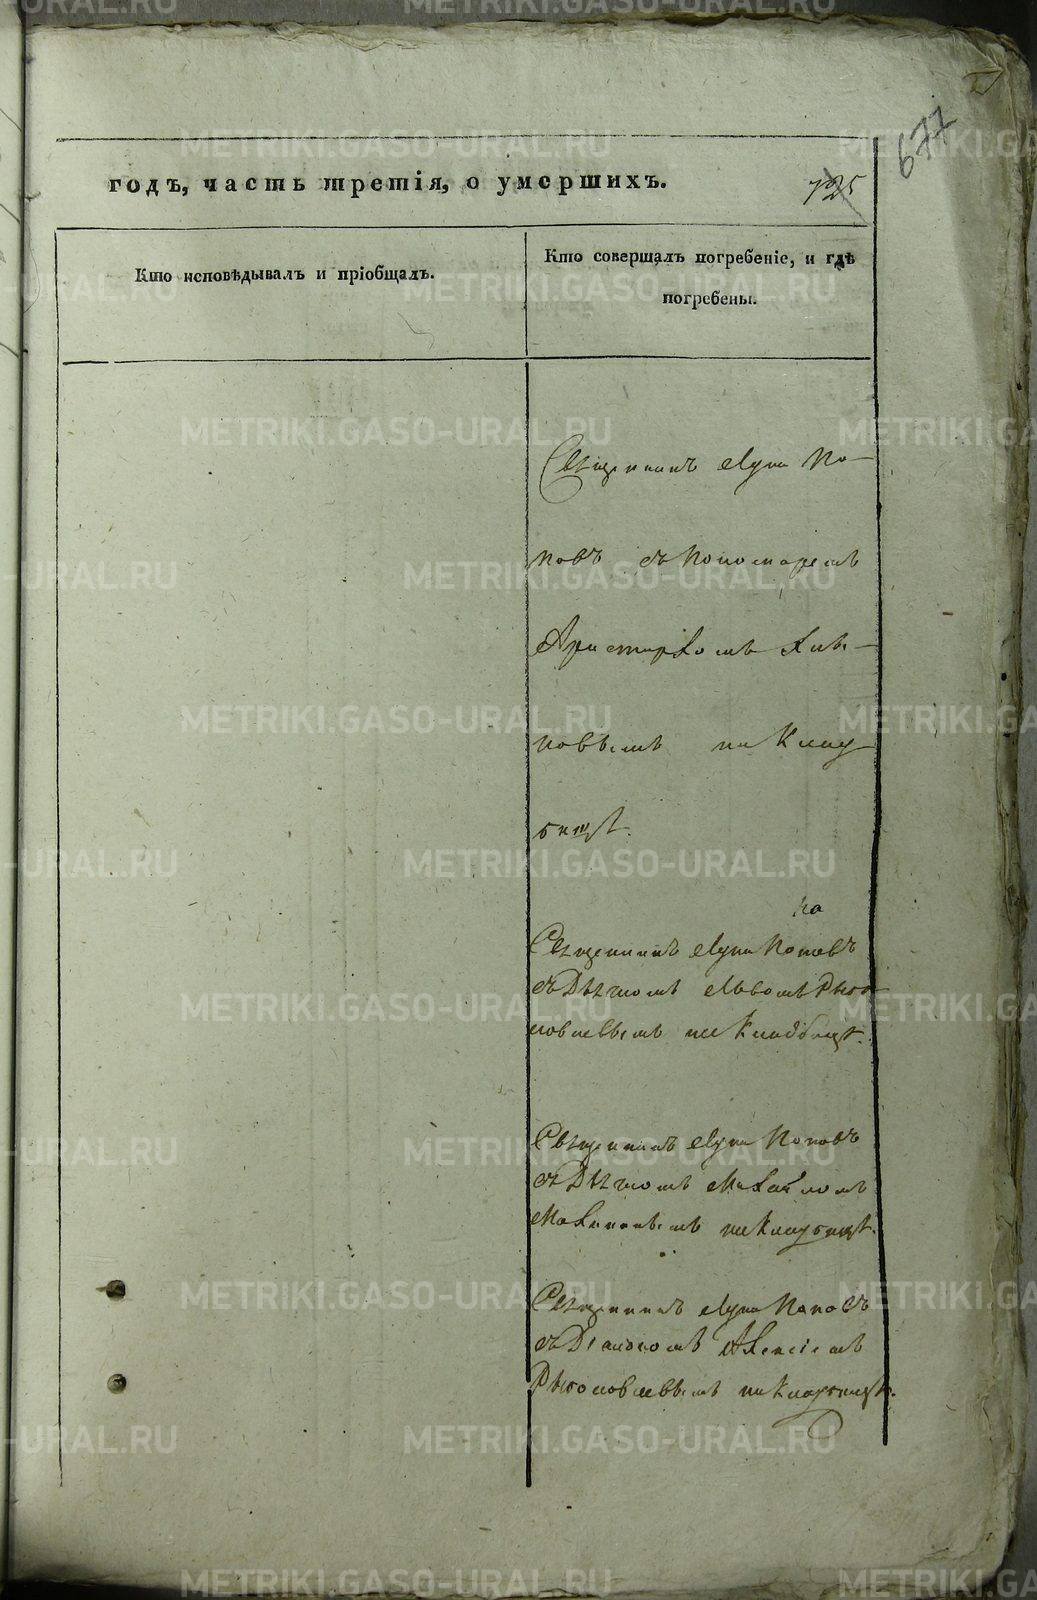 677
годъ, часть третія, о умершихъ.
725
Кто исповѣдывалъ и пріобщалъ.
Кто совершалъ погребеніе, и гдѣ
погребены.
Священникъ Лука По-
повъ съ Пономаремъ
Аристархомъ
новымъ на Клад
бищѣ.
Священникъ Лука Поповъ
съ Дьячкомъ Львомъ
на Кладбищѣ.
Священникъ Лука Поповъ
съ Дьячкомъ Михайломъ
на Кладбищѣ.
Священникъ Лука Поповъ
съ Діакономъ Алексіемъ
на Кладбищѣ.
METRIKI.GASO-URAL.RU